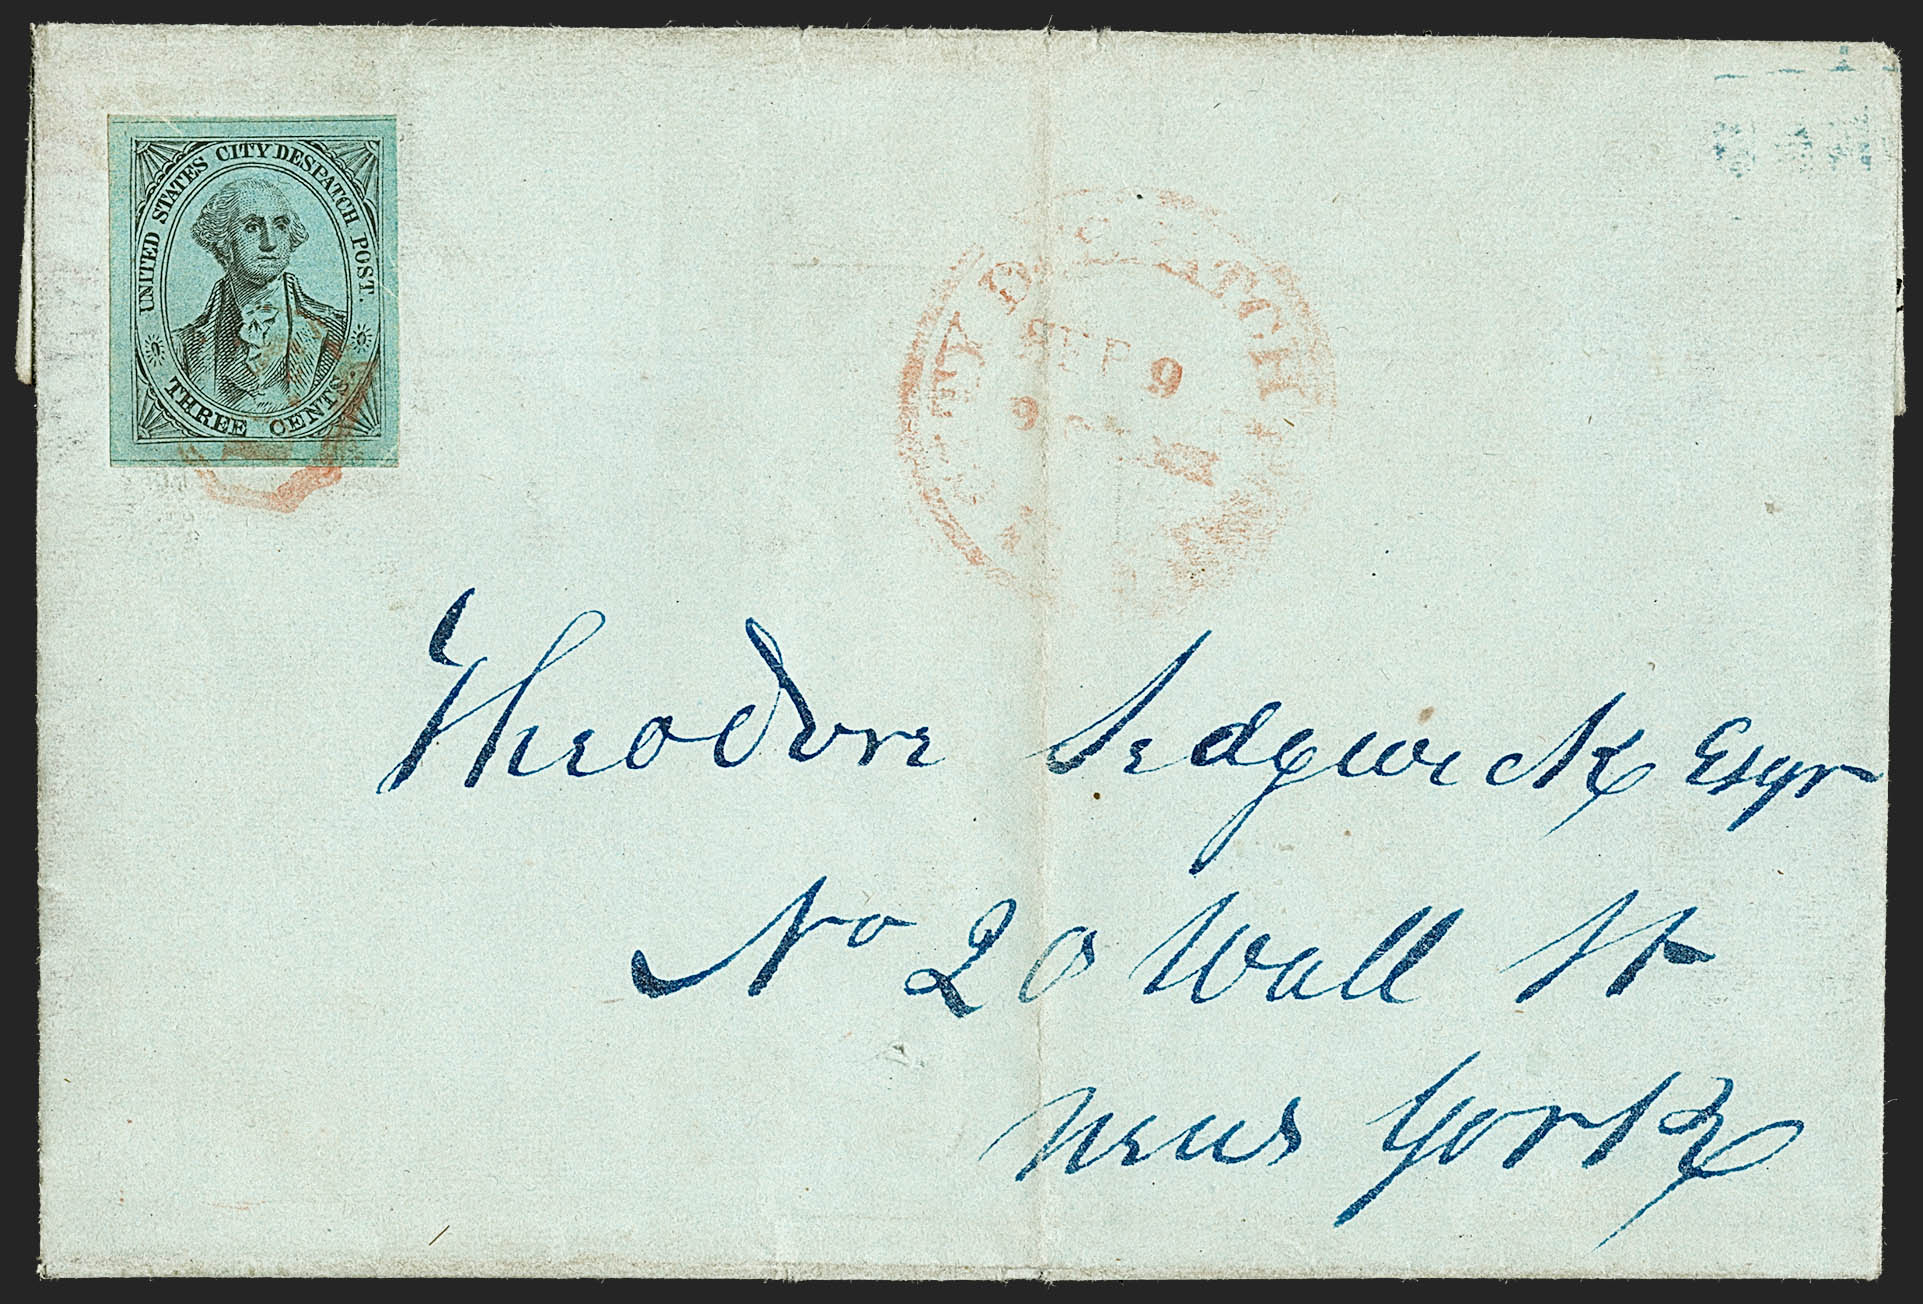 UNITED STATES CITY DESPATCH POST.
THREE CENTS.
CITY DESPATCH POST
SEP 9
9
Theodore Sedgwick Esqr
No 20 Wall St
New York